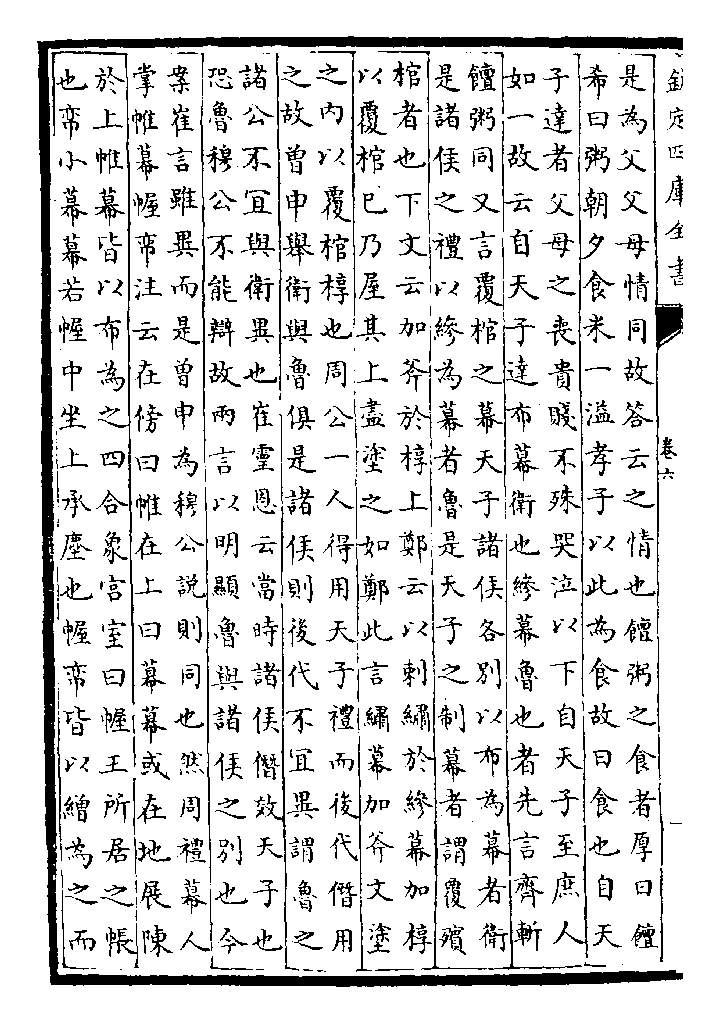 欽定四庫全書
卷六
是為父父母情同故答云之情也饘粥之食者厚曰饘
希曰粥朝夕食米一溢孝子以此為食故曰食也自天
子達者父母之喪貴賤不殊哭泣以下自天子至庶人
如一故云自天子達布幕衛也縿幕魯也者先言齊斬
饘粥同又言覆棺之幕天子諸侯各別以布為幕者衛
是諸侯之禮以縿為幕者魯是天子之制幕者謂覆殯
棺者也下文云加斧於椁上鄭云以刺繡於縿幕加椁
以覆棺已乃屋其上盡塗之如鄭此言繡幕加斧文塗
之内以覆棺椁也周公一人得用天子禮而後代僭用
之故曾申舉衛與魯俱是諸侯則後代不宜異謂魯之
諸公不宜與衛異也崔靈恩云當時諸侯僭效天子也
恐魯穆公不能辯故兩言以明顯魯與諸侯之別也今
案崔言雖異而是曾申為穆公說則同也然周禮幕人
掌帷幕幄帟注云在傍曰帷在上曰幕幕或在地展陳
於上帷幕皆以布為之四合象宫室曰幄王所居之帳
也帟小幕幕若幄中坐上承塵也幄帟皆以繒為之而